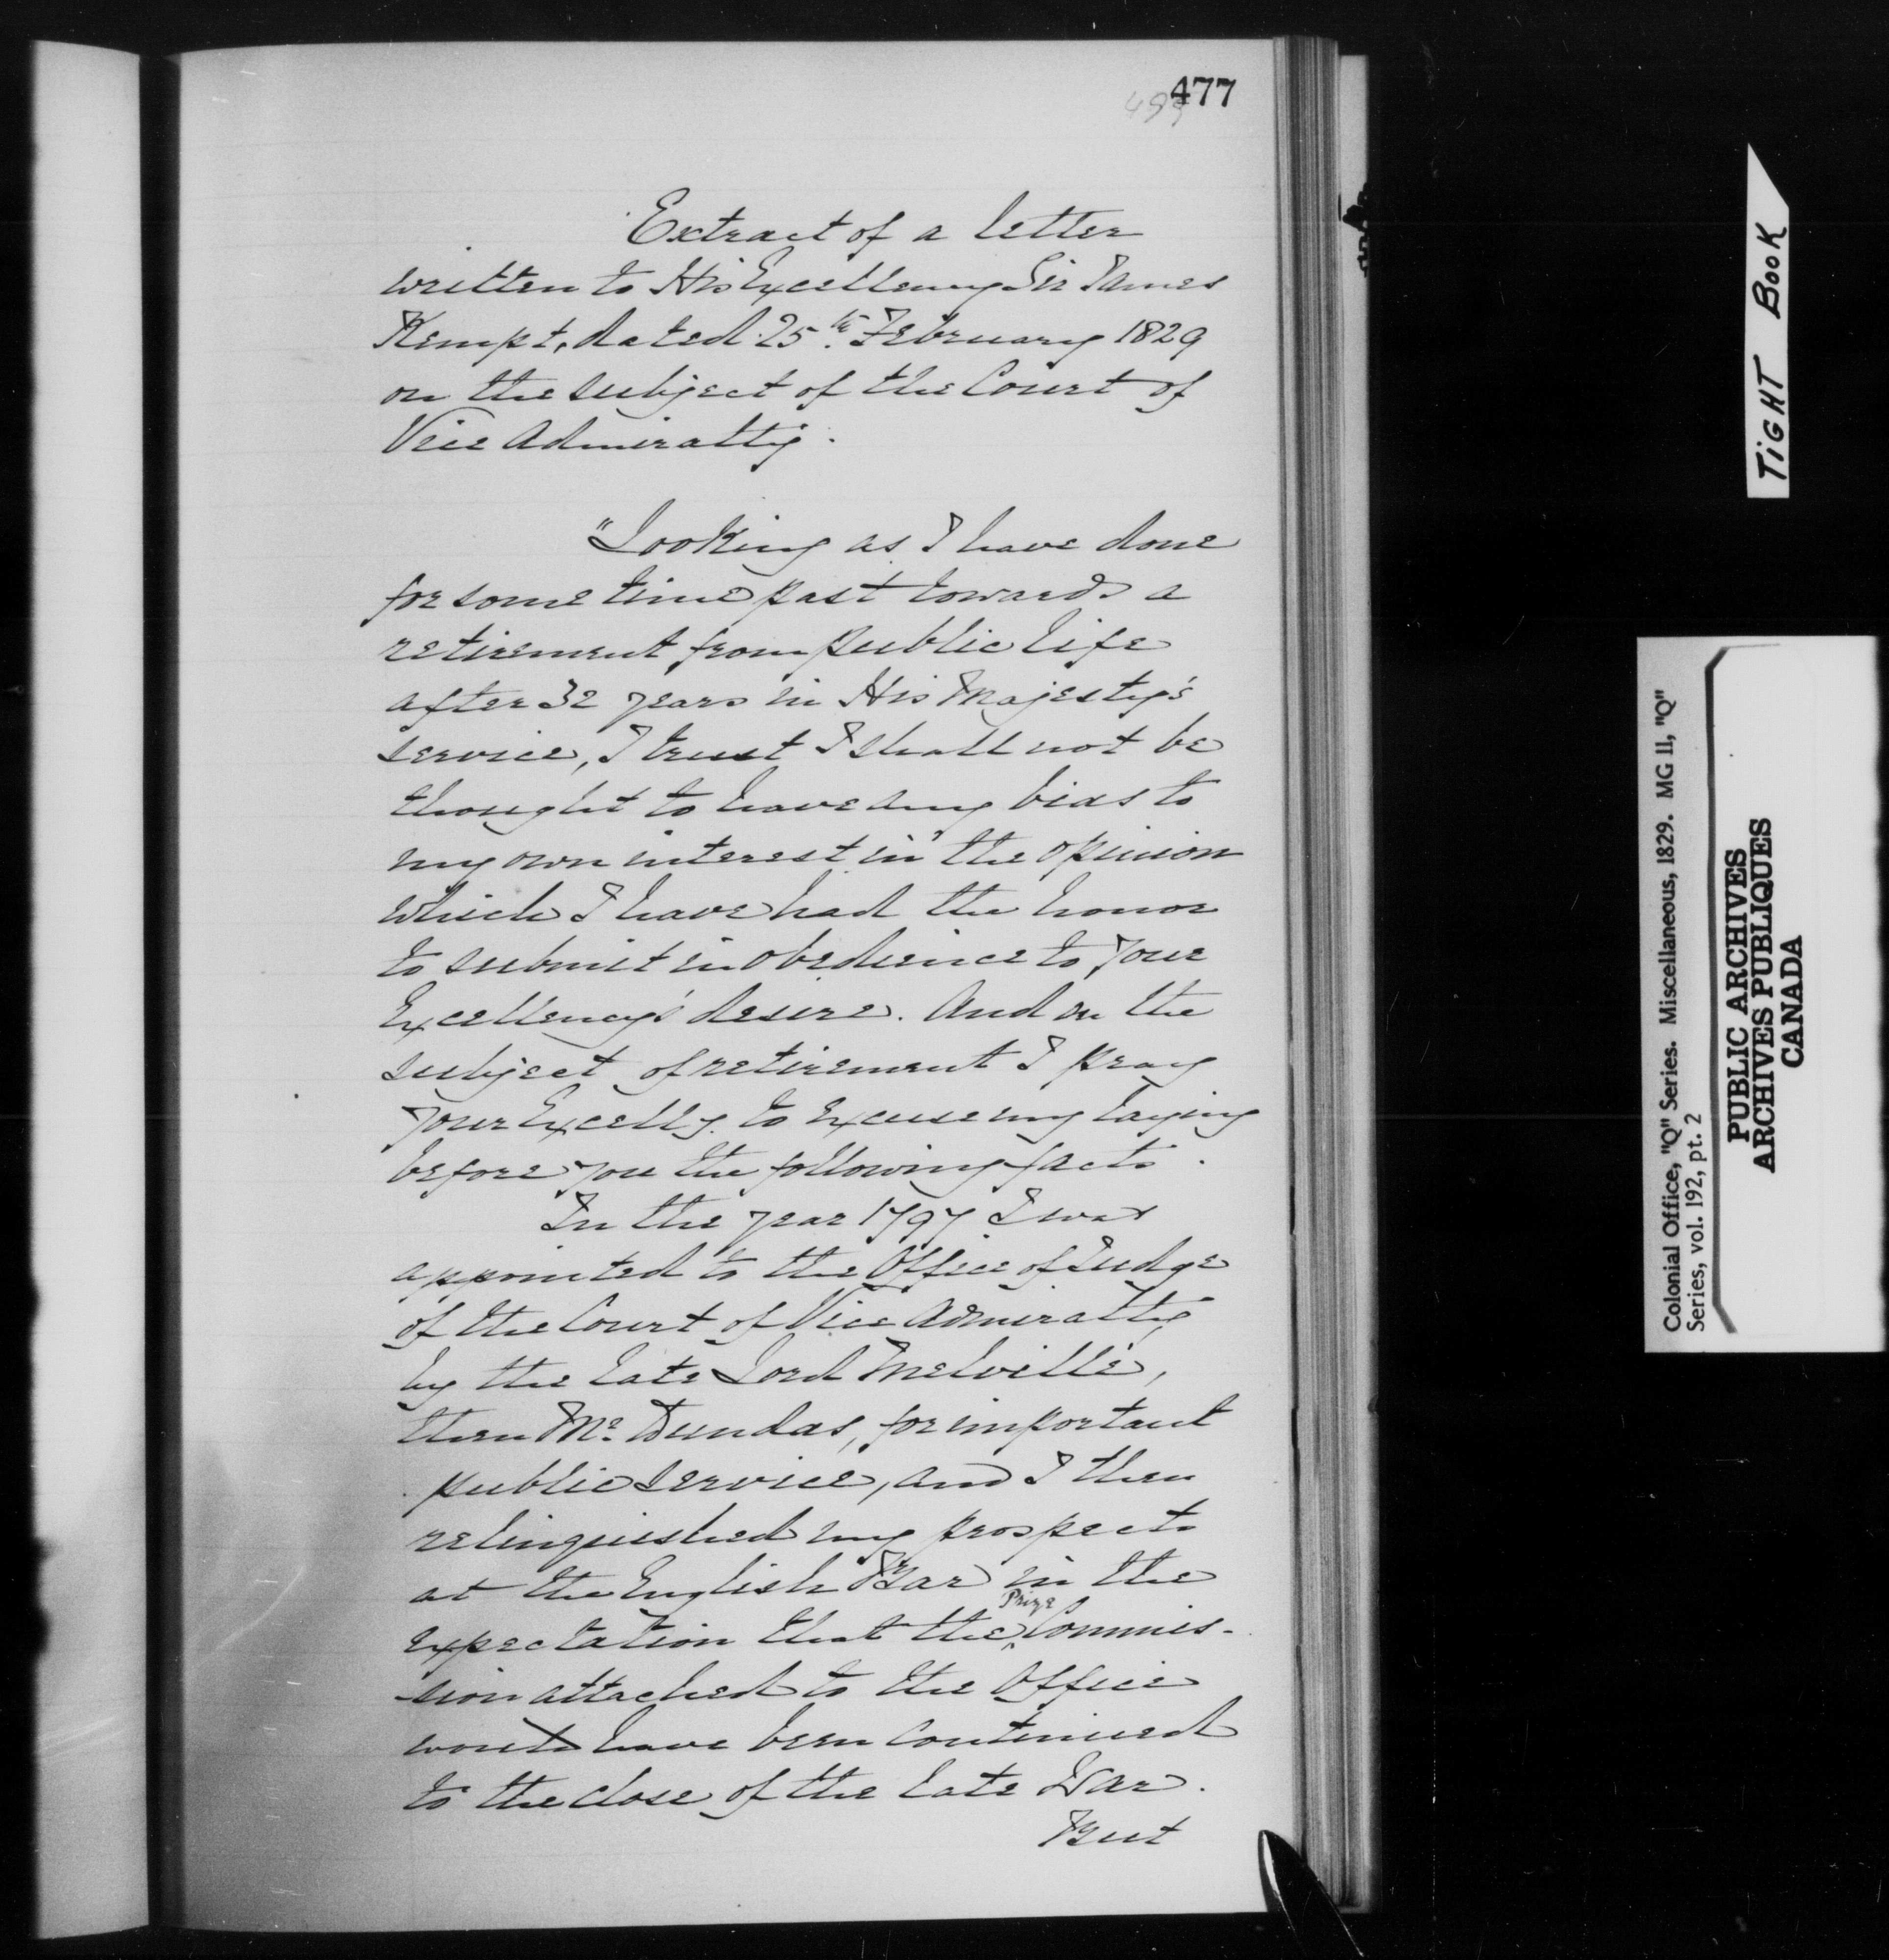 477
Extract of a letter
written to His Excellency Sir James
Kempt, dated 25th. February 1829
on the subject of the Court of
Vice Admiralty.
"Looking as I have done
for some time past towards a
retirement from public life
after 32 years in His Majesty's
service, I trust I shall not be
thought to have any bias to
my own interest in the opinion
which I have had the honor
to submit in obedience to your
Excellency's desire. And on the
subject of retirement I pray
your Excelly. to excuse my laying
before you the following facts.
In the year 1797 I was
appointed to the Office of Judge
of the Court of Vice Admiralty
by the late Lord Melville,
then Mr. Dundas, for important
public service, and I then
relinquished my prospects
at the English Bar in the
expectation that the Prize Commis-
sion attached to the Office
would have been continued
to the close of the late War.
But
TIGHT BOOK
Colonial Office, "Q" Series. Miscellaneous, 1829. MG 11, "Q"
Series, vol. 192, pt. 2
PUBLIC ARCHIVES
ARCHIVES PUBLIQUES
CANADA